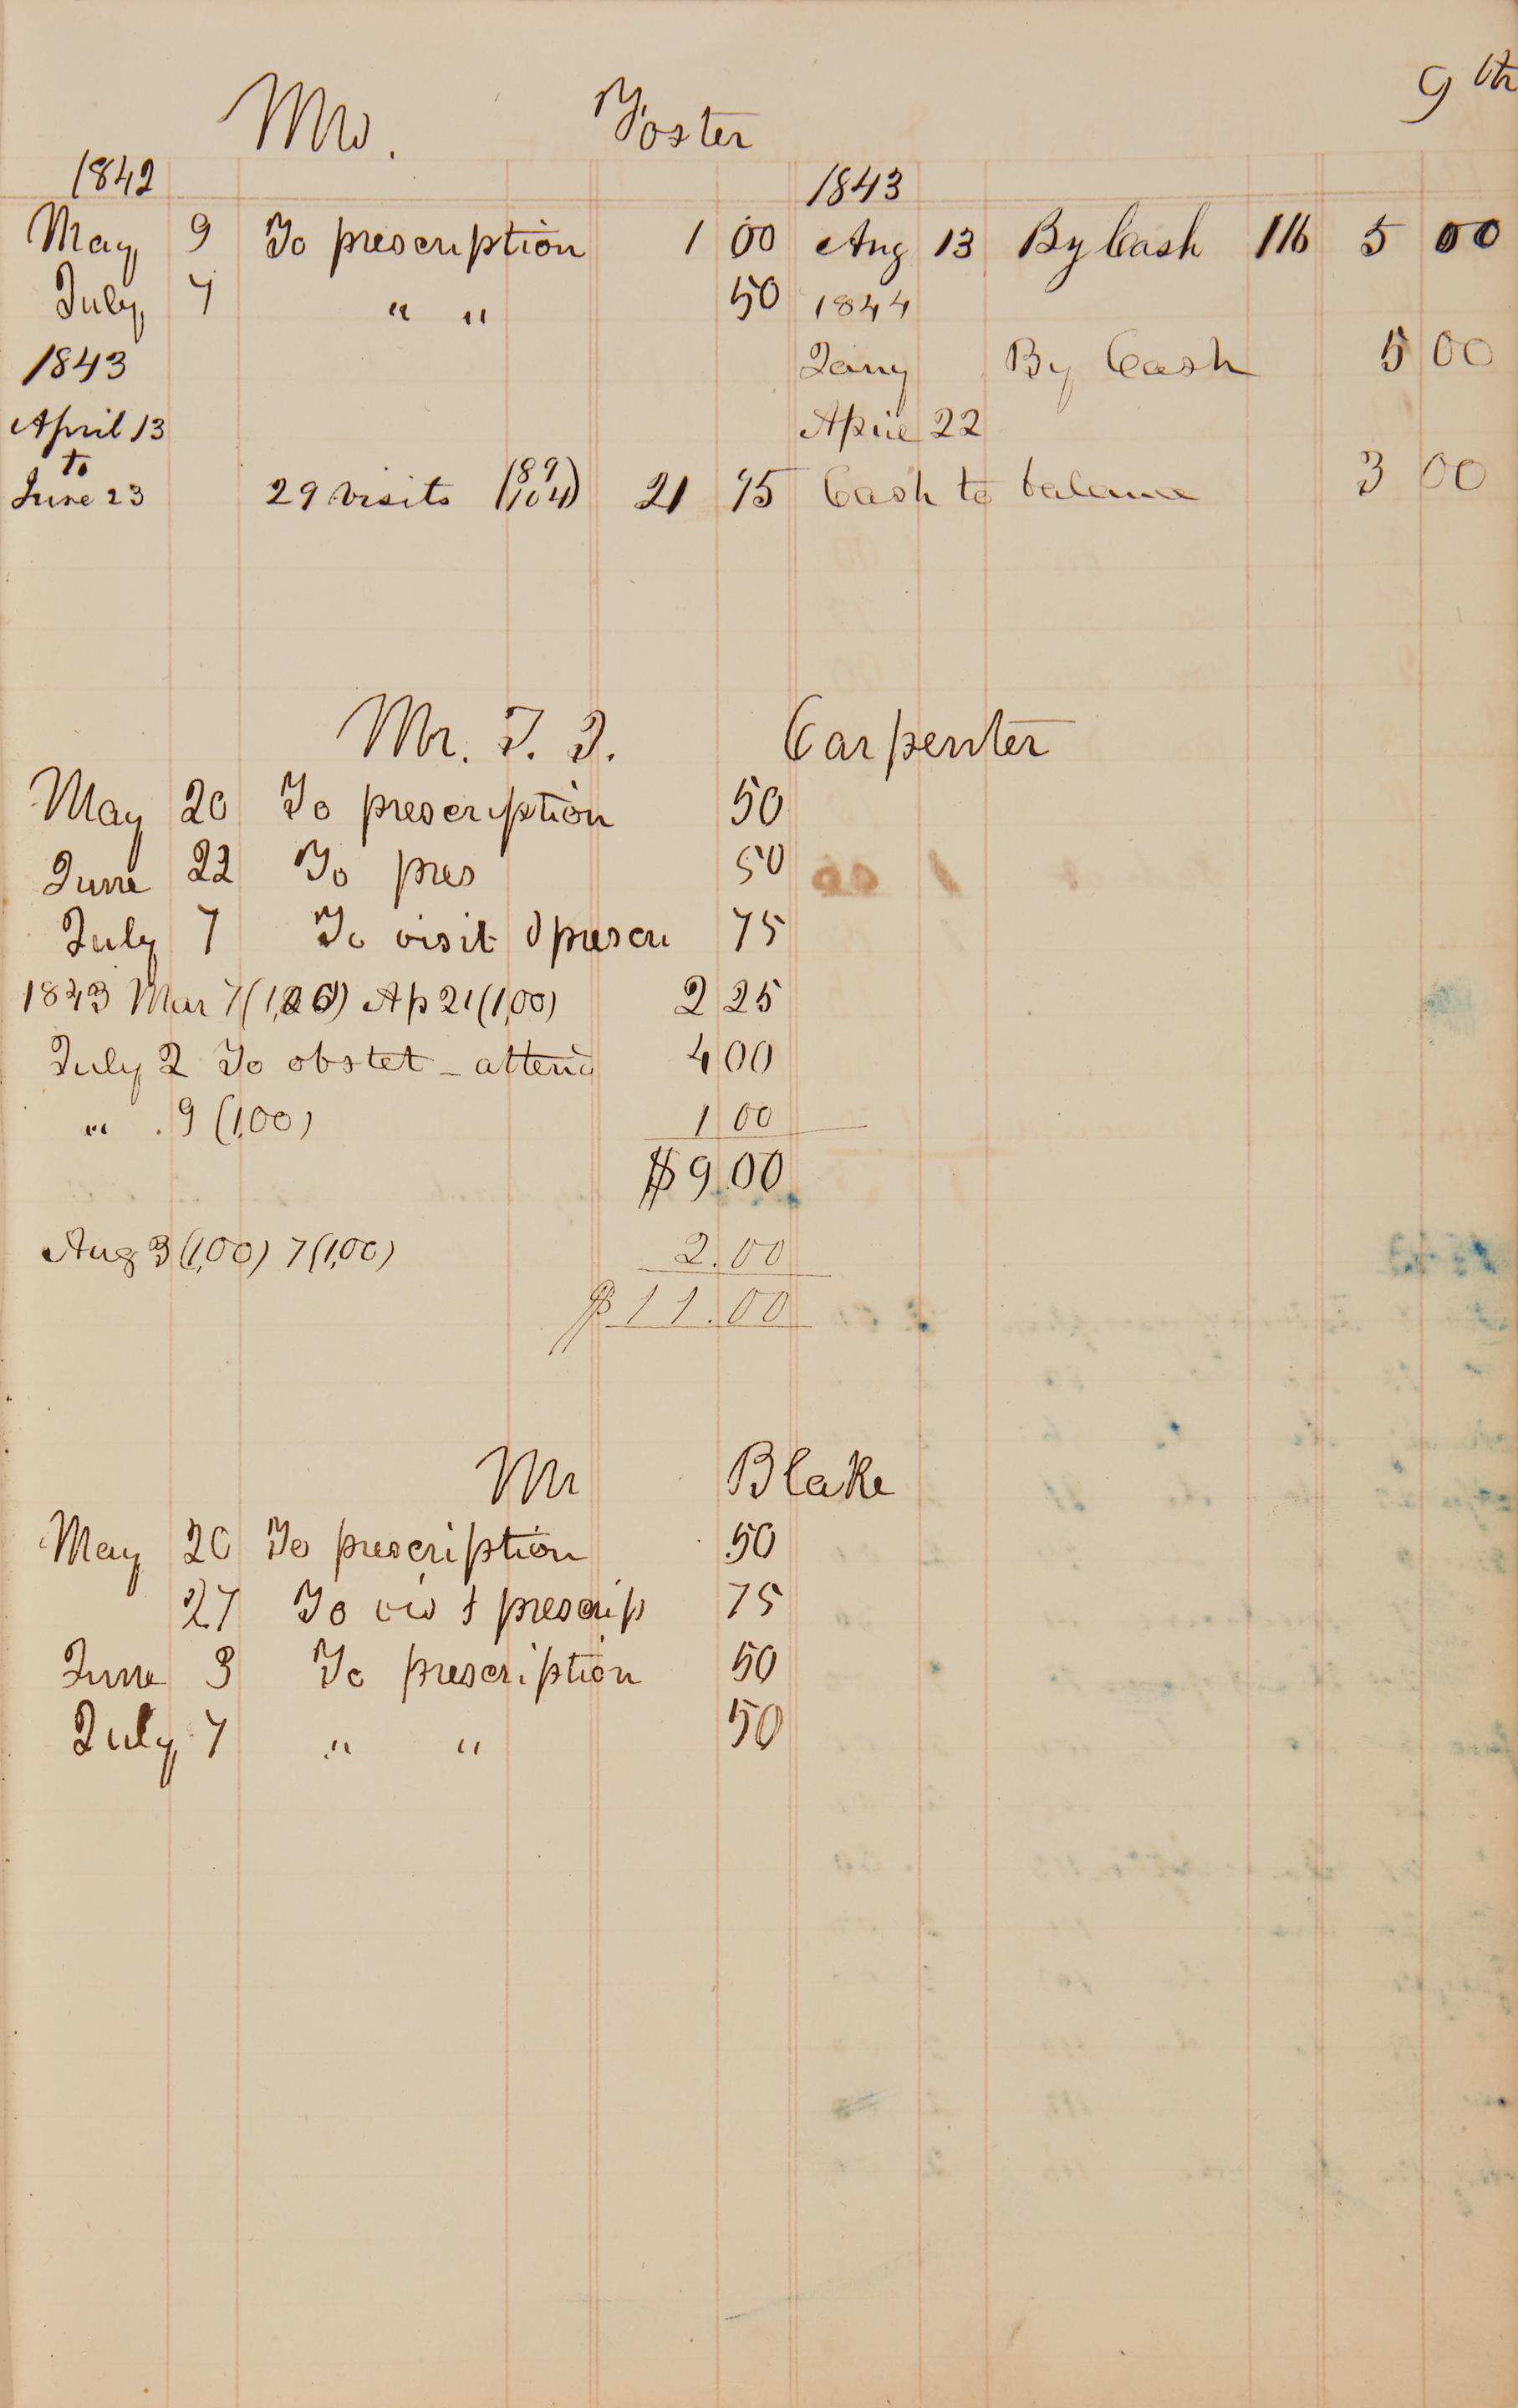 9th
Mr. Foster
1842 1843
May 9 To prescription 1 00 Aug 13 By Cash 116 5 00
July 7 " " 50 1844
1843 Jany By Cash 5 00
April 13 April 22
to
June 23 29 visits (89 104) 21 75 Cash to balance 3 00
Mr. T. J. Carpenter
May 20 To prescription 50
June 22 To pres 50
July 7 To visit & prescri 75
1843 Mar 7 Ap 21 (1,00) 2 25
July 2 To obstet - attend 4 00
" . 9 (1,00) 1 00
$9 00
Aug 3 (1,00) 7 (1,00) 2.00
$11.00
Mr Blake
May 20 To prescription 50
27 To vis & prescrip 75
June 3 To prescription 50
July 7 " " 50